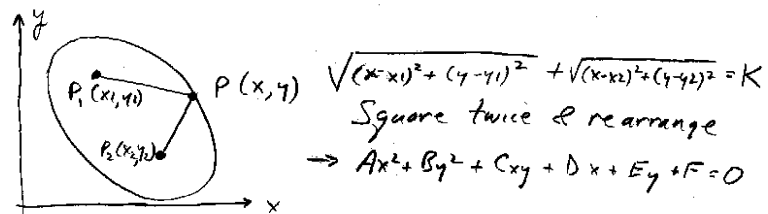 y
P₁ (x1, y1)
P (x, y)
P₂ (x2, y2)
x
√(x-x1)² + (y-y1)² + √(x-x2)² + (y-y2)² = K
Square twice & rearrange
→ Ax² + By² + Cxy + Dx + Ey + F = 0